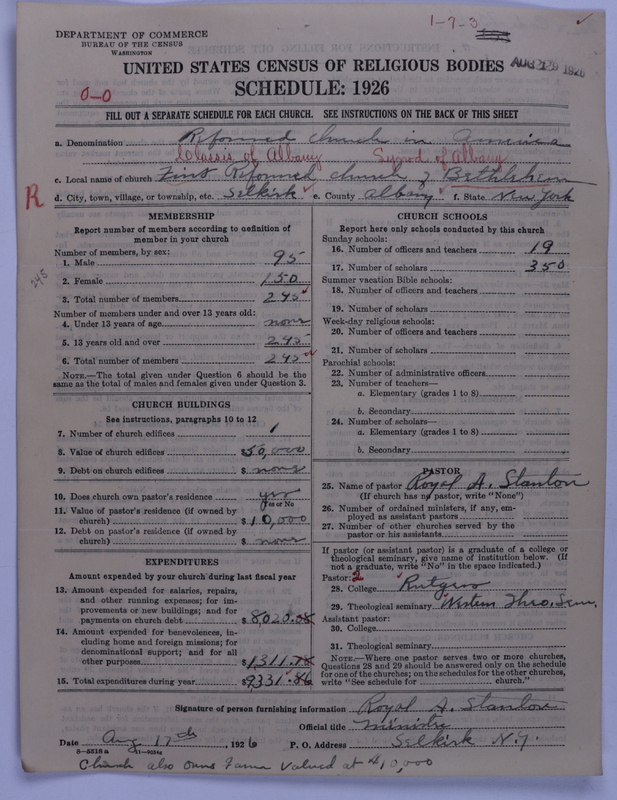 1-7-3
DEPARTMENT OF COMMERCE
BUREAU OF THE CENSUS
WASHINGTON
UNITED STATES CENSUS OF RELIGIOUS BODIES
AUG 1926
SCHEDULE: 1926
0-0
FILL OUT A SEPARATE SCHEDULE FOR EACH CHURCH. SEE INSTRUCTIONS ON THE BACK OF THIS SHEET
a. Denomination Reformed Church in America
Classis of Albany Synod of Albany
c. Local name of church First Reformed Church of Bethlehem
R
d. City, town, village, or township, etc. Selkirk e. County Albany f. State New York
MEMBERSHIP
Report number of members according to definition of
member in your church
Number of members, by sex:
1. Male 95
2. Female 150
245
3. Total number of members 245
Number of members under and over 13 years old:
4. Under 13 years of age none
5. 13 years old and over 245
6. Total number of members 245
NOTE.—The total given under Question 6 should be the
same as the total of males and females given under Question 3.
CHURCH BUILDINGS
See instructions, paragraphs 10 to 12
7. Number of church edifices 1
8. Value of church edifices $50,000
9. Debt on church edifices $ none
10. Does church own pastor's residence yes
(Yes or No
11. Value of pastor's residence (if owned by
church) $10,000
12. Debt on pastor's residence (if owned by
church) $ none
EXPENDITURES
Amount expended by your church during last fiscal year
13. Amount expended for salaries, repairs,
and other running expenses; for im-
provements or new buildings; and for
payments on church debt $8020.08
14. Amount expended for benevolences, in-
cluding home and foreign missions; for
denominational support; and for all
other purposes $1311.78
15. Total expenditures during year $9331.86
CHURCH SCHOOLS
Report here only schools conducted by this church
Sunday schools:
16. Number of officers and teachers 19
17. Number of scholars 350
Summer vacation Bible schools:
18. Number of officers and teachers
19. Number of scholars
Week-day religious schools:
20. Number of officers and teachers
21. Number of scholars
Parochial schools:
22. Number of administrative officers
23. Number of teachers—
a. Elementary (grades 1 to 8)
b. Secondary
24. Number of scholars—
a. Elementary (grades 1 to 8)
b. Secondary
PASTOR
25. Name of pastor Royal A. Stanton
(If church has no pastor, write "None")
26. Number of ordained ministers, if any, em-
ployed as assistant pastors
27. Number of other churches served by the
pastor or his assistants
If pastor (or assistant pastor) is a graduate of a college or
theological seminary, give name of institution below. (If
not a graduate, write "No" in the space indicated.)
Pastor: 2
28. College Rutgers
29. Theological seminary Western Theo. Sem.
Assistant pastor:
30. College
31. Theological seminary
NOTE.—Where one pastor serves two or more churches,
Questions 28 and 29 should be answered only on the schedule
for one of the churches; on the schedules for the other churches,
write "See schedule for church."
Signature of person furnishing information Royal A. Stanton
Official title Minister
Date Aug 17th, 1926 P. O. Address Selkirk N.Y.
Church also owns Farm valued at $10,000